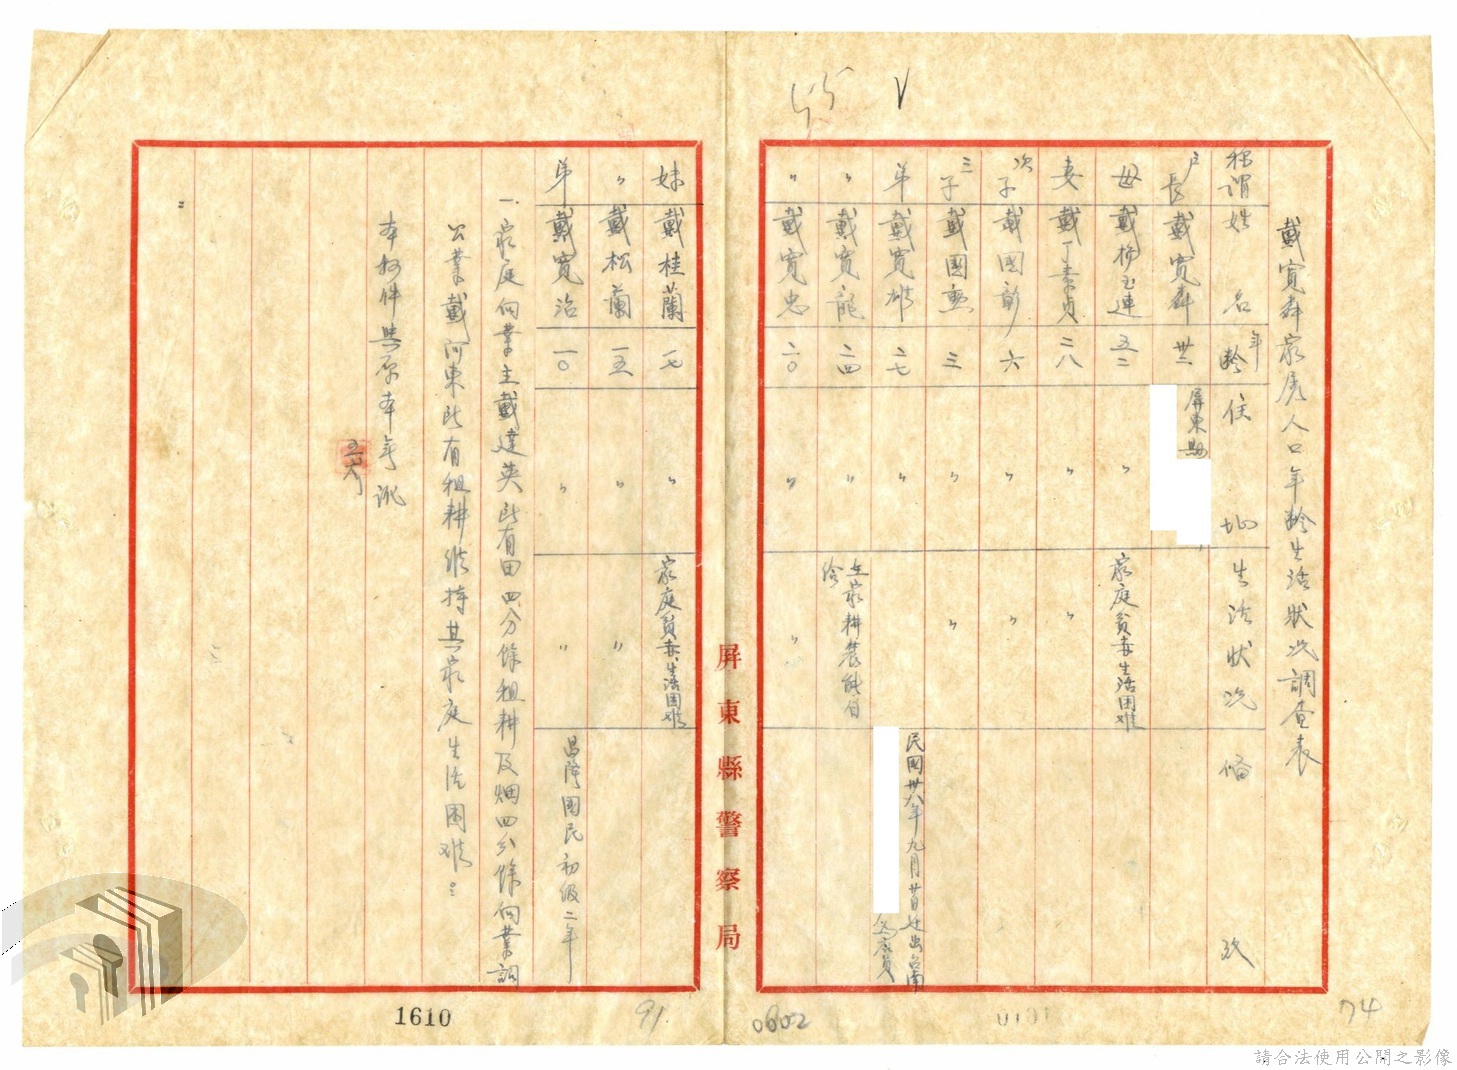 戴寬森家屬人口年齡生活狀況調查表
稱謂 姓名 年齡 住址 生活狀況 備攷
戶長 戴寬森 卅二 屏東縣
母 戴楊玉連 五二 〃 家庭貧赤生活困难
妻 戴丁素貞 二八 〃 〃
次子 戴國彰 六 〃 〃
三子 戴國 三 〃 〃
弟 戴寬雄 二七 民國卅八年九月廿日迁出台南 為雇員
〃 戴寬龍 二四 〃 在家耕農能自給
〃 戴寬忠 二〇 〃 〃
妹 戴桂蘭 一七 〃 家庭貧赤生活困难
〃 戴松蘭 一五 〃 〃
弟 戴寬治 一〇 〃 〃 昌隆國民初級二年
一、家庭向業主戴達英比有田四分餘租耕及烟四分餘向業詞
公業戴河東比有租耕維持其家庭生活困难
本抄件與原本無訛
屏東縣警察局
1610
91
0602
74
請合法使用公開之影像